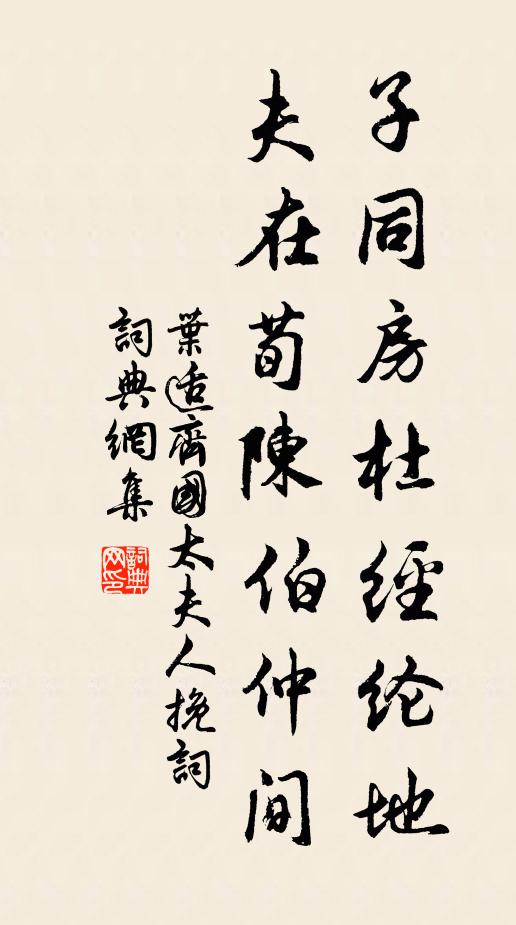 子同房杜經纶地
夫在荀陳伯仲間
葉適齊國太夫人挽詞
詞典網集
詞典网印